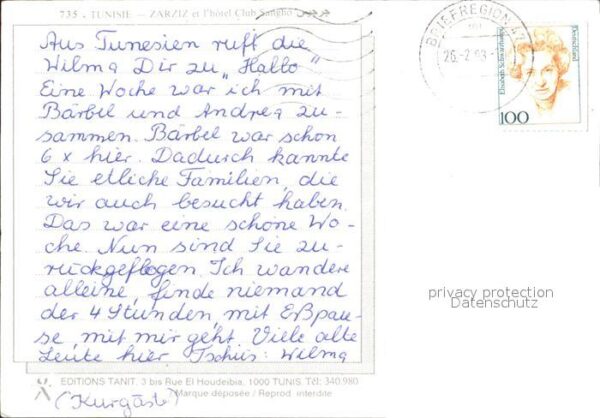 735 - TUNISIE - ZARZIZ et l'hôtel Club Sangho
Aus Tunesien ruft die
Wilma Dir zu „Hallo"
Eine Woche war ich mit
Bärbel und Andrea zu-
sammen. Bärbel war schon
6 x hier. Dadurch kannte
Sie etliche Familien, die
wir auch besucht haben.
Das war eine schöne Wo-
che. Nun sind Sie zu-
rückgeflogen. Ich wandere
alleine, finde niemand
der 4 Stunden, mit Eßpau-
se, mit mir geht. Viele alte
Leute hier. Tschüs: Wilma
(Kurgäste)
EDITIONS TANIT. 3 bis Rue El Houdeibia, 1000 TUNIS. Tél: 340.980
Marque déposée / Reprod interdite
BRIEFREGION 42
26.-2.93
Elisabeth Schwarzhaupt
Deutschland
100
privacy protection
Datenschutz